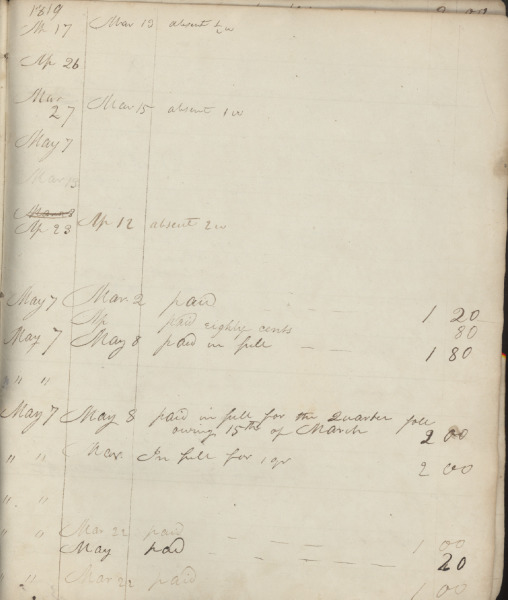 1819
Ap 17 Mar 13 absent ½ w
Ap 26
Mar 27 Mar 15 absent 1 w
May 7
Mar 13
Ap 23 Ap 12 absent 2 w
May 7 Mar 2 paid 1 20
Ap paid eighty cents 80
May 7 May 8 paid in full 1 80
" "
May 7 May 8 paid in full for the Quarter foll
owing 15th of March 2 00
" " Mar. In full for 1 qr 2 00
" "
" " Mar 22 paid 1 00
May paid 20
" " Mar 22 paid 1 00